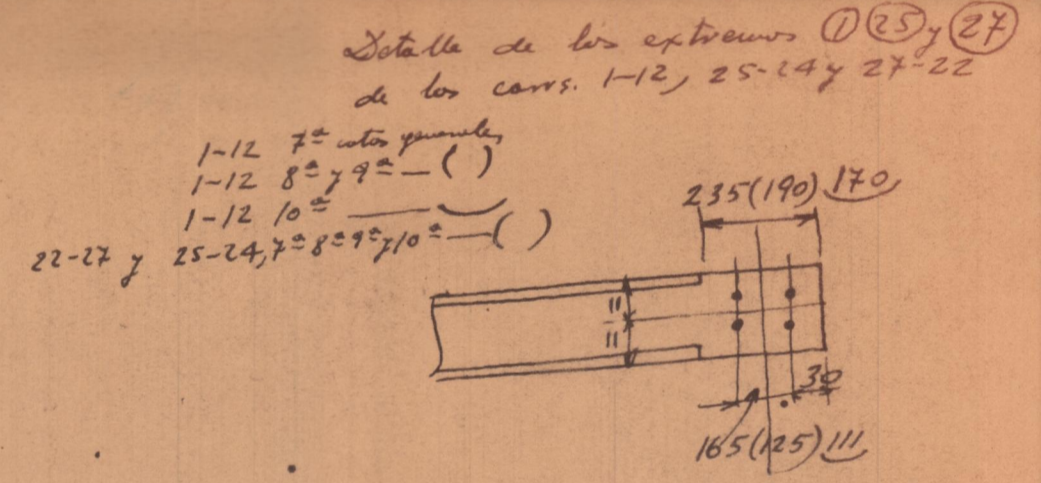 Detalle de los extremos ① ㉕ y ㉗
de los carrs. 1-12, 25-24 y 27-22
1-12 7ª cotas generales
1-12 8ª y 9ª — ( )
1-12 10ª —
22-27 y 25-24, 7ª 8ª 9ª y 10ª — ( )
235(190) 170
=
=
30
165(125) 111